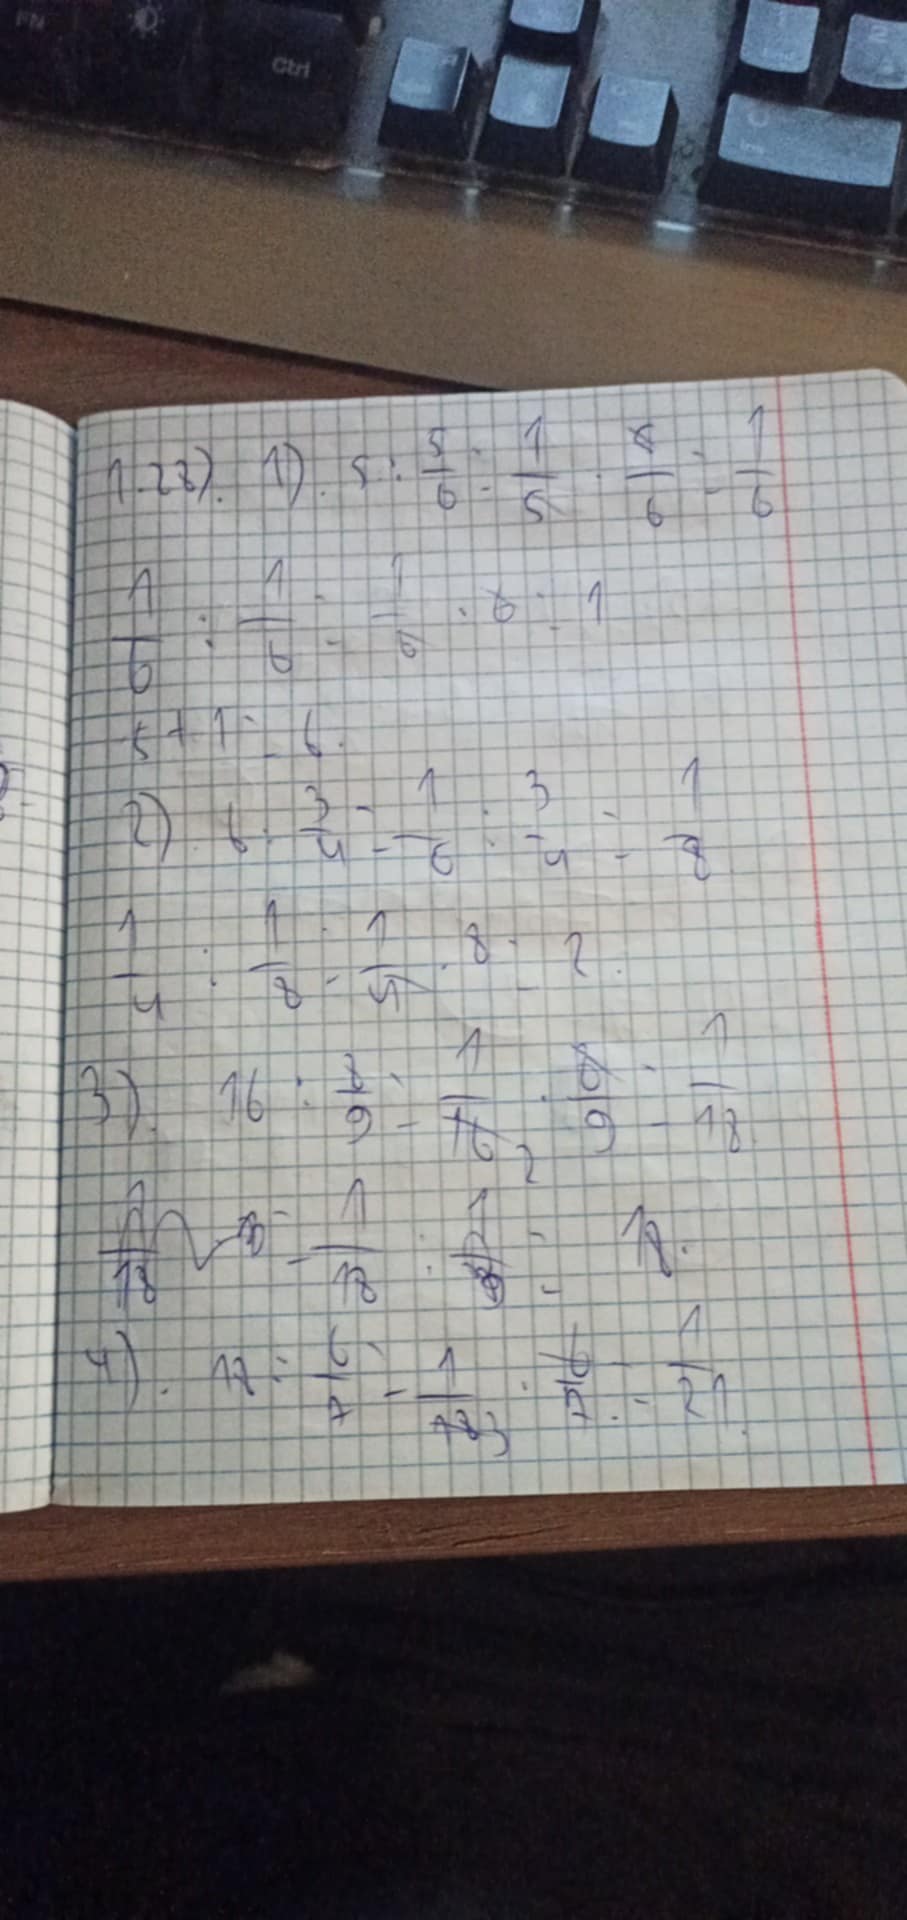 FN
Ctrl
Ins
1.28). 1). 5 : 5/6 = 1/5 · 5/6 = 1/6
1/6 : 1/6 = 1/6 · 6 = 1
5 + 1 = 6.
2). 6 : 3/4 = 1/6 · 3/4 = 1/8
1/4 : 1/8 = 1/4 · 8 = 2.
3). 16 : 8/9 = 1/16 2 · 8/9 = 1/18.
1/18 = 1/18 : = 18.
4). 18 : 6/7 = 1/18 3 · 6/7 = 1/21.